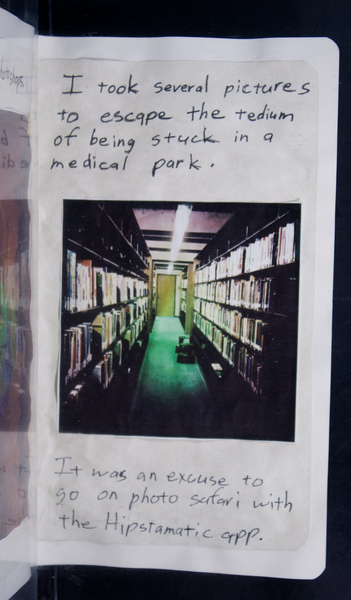 I took several pictures
to escape the tedium
of being stuck in a
medical park.
It was an excuse to
go on photo safari with
the Hipstamatic app.